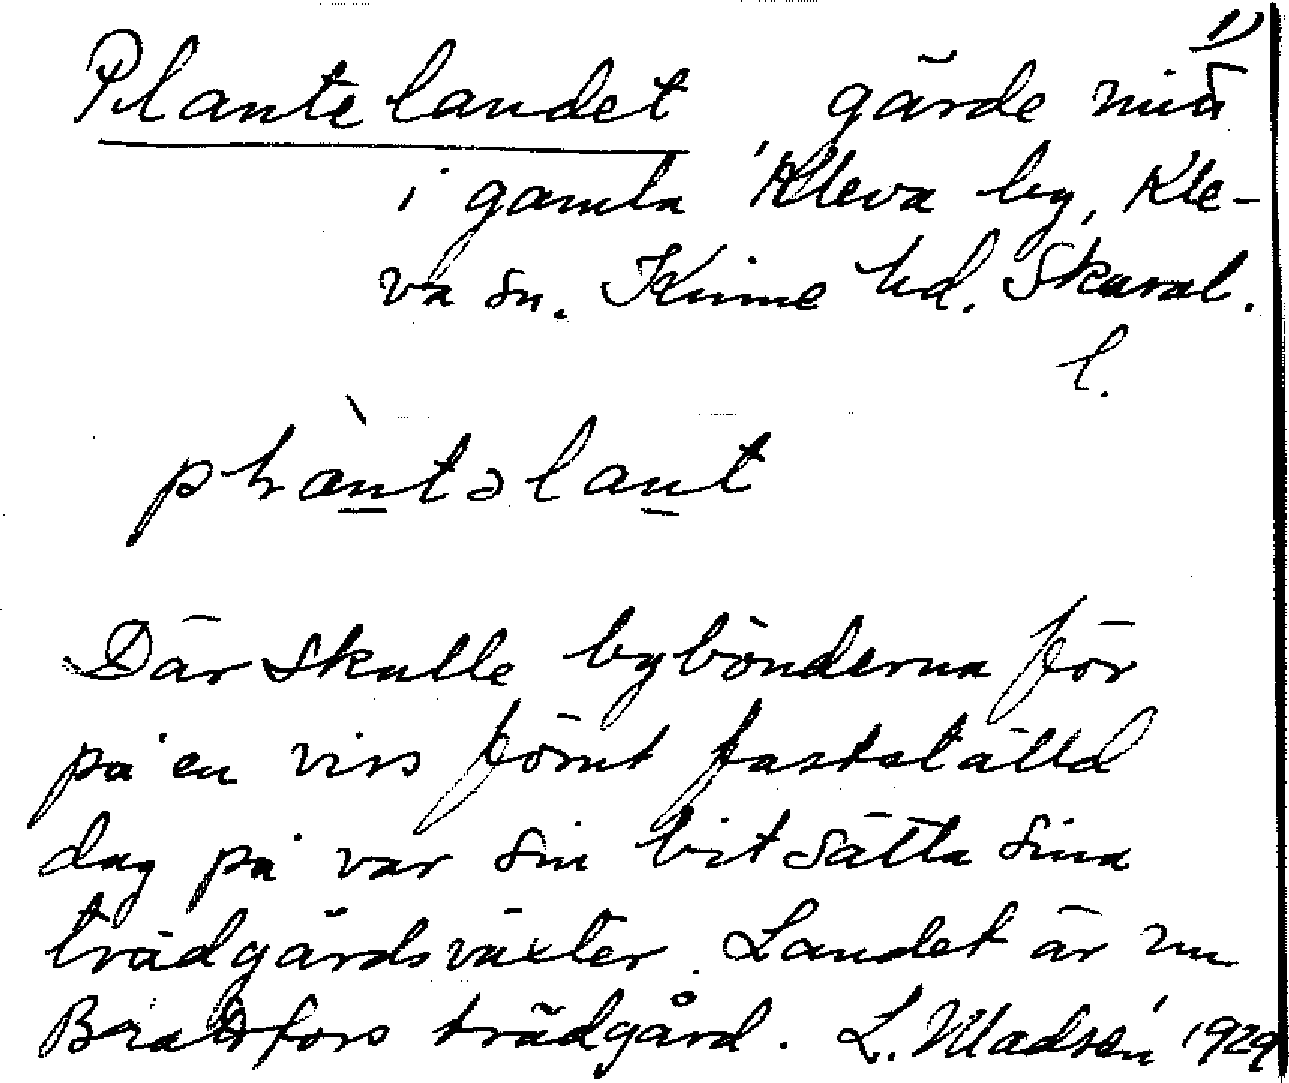 1)
Plantelandet gärde
i gamla Kleva by, Kle-
va sn. Kinne hd. Skarab.
l.
Där skulle bybönderna för
på en viss förut fastställd
dag på var sin bit sätta sina
trädgårdsväxter. Landet är nu
trädgård. L. Madsén 1929